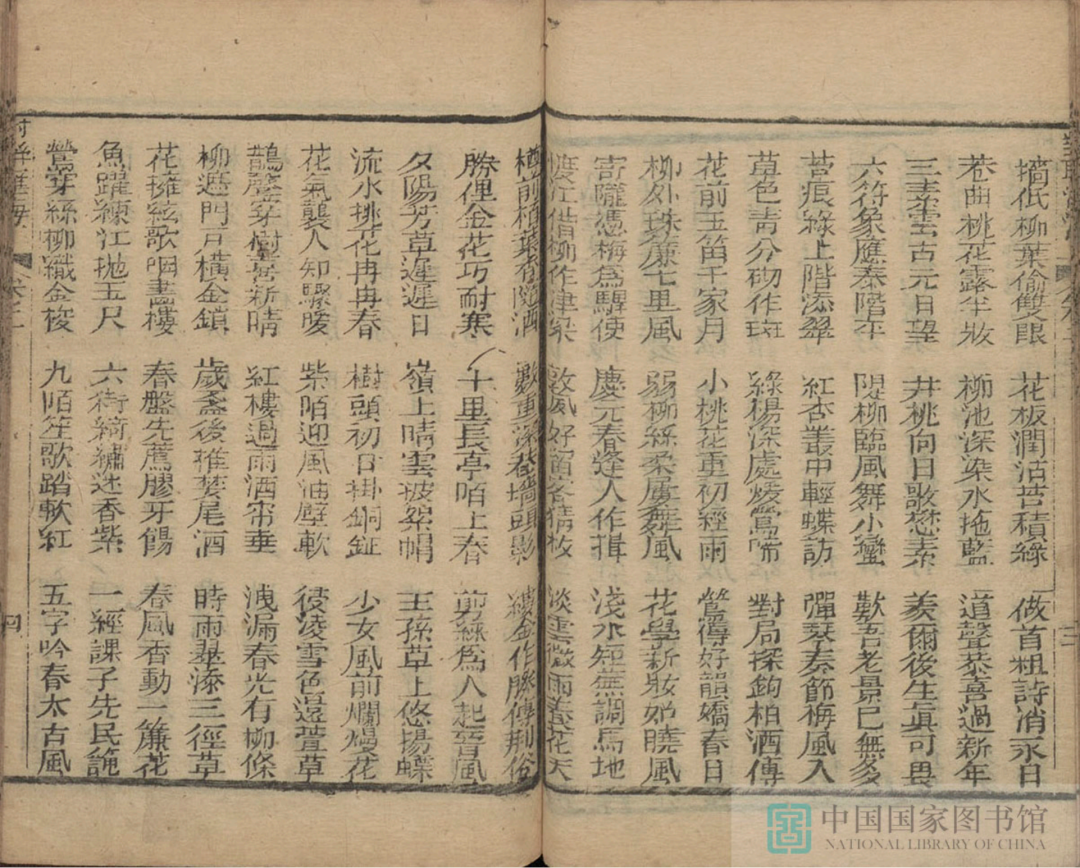 摘低柳葉偷雙眼 花板潤沾苔積綠 做首粗詩消永日
卷曲桃花露半妝 柳池深染水拖藍 道聲恭喜過新年
三素雲古元日望 井桃向日歌樊素 羨爾後生真可畏
六符象應泰階平 隄柳臨風舞小蠻 歎吾老景已無多
苔痕綠上階添翠 紅杏叢中輕蝶訪 彈琴奏節梅風入
草色青分砌作斑 綠楊深處煖鶯啼 對局探鉤柏酒傳
花前玉笛千家月 小桃花重初經雨 鶯簧好韻嬌春日
柳外珠簾七里風 弱柳絲柔屢舞風 花學新妝妒曉風
寄隴憑梅為驛使 慶元春逢人作揖 淺水短蕪調馬地
渡江借柳作津梁 敦風好留客猜枚 淡雲微雨養花天
樽前柏葉香隨酒 數重深巷墻頭影 縷金作勝傳荊俗
勝俚金花巧耐寒 十里長亭陌上春 剪綵為人起晉風
夕陽芳草遲遲日 嶺上晴雲披絮帽 王孫草上悠揚蝶
流水桃花冉冉春 樹頭初日掛銅鉦 少女風前爛熳花
花氣襲人知驟暖 紫陌迎風油壁軟 彼凌雪色還萱草
鵲聲穿樹喜新晴 紅樓過雨酒帘垂 洩漏春光有柳條
柳遮門戶橫金鎖 歲盞後推婪尾酒 時雨翠添三徑草
花擁絃歌咽畫樓 春盤先薦膠牙餳 春風香動一簾花
魚躍練江拋玉尺 六街綺繡迷香紫 一經課子先民範
鶯穿絲柳織金梭 九陌笙歌踏軟紅 五字吟春太古風
四
中国国家图书馆
NATIONAL LIBRARY OF CHINA